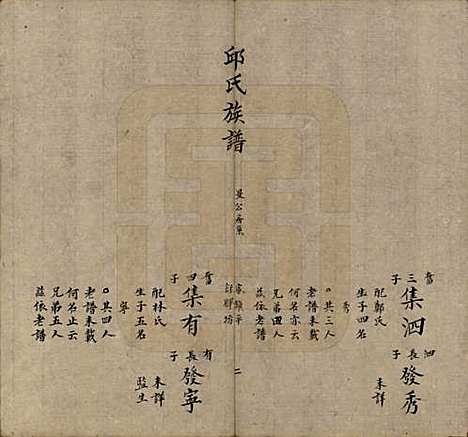 邱氏族譜
三子
集泗
配鄭氏
生子四名
秀
其三人
老譜未載
何名亦云
兄弟四人
茲依老譜
泗長子
發秀
未詳
二
四子
集有
配林氏
生子五名
寧
其四人
老譜未載
何名止云
兄弟五人
茲依老譜
有長子
發寧
未詳
監生